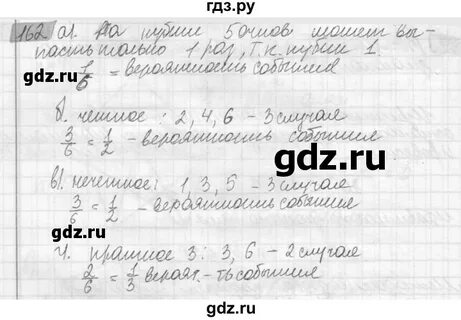 гдз.ру
162 а). На кубик 5 очков может вы-
пасть только 1 раз, т.к. кубик 1.
1/6 = вероятность события
б). четное : 2, 4, 6 - 3 случая
3/6 = 1/2 - вероятность события
гдз.ру
в). нечетное: 1, 3, 5 - 3 случая
3/6 = 1/2 - вероятность события
г). кратное 3: 3, 6 - 2 случая
2/6 = 1/3 вероят.-ть события
гдз.ру